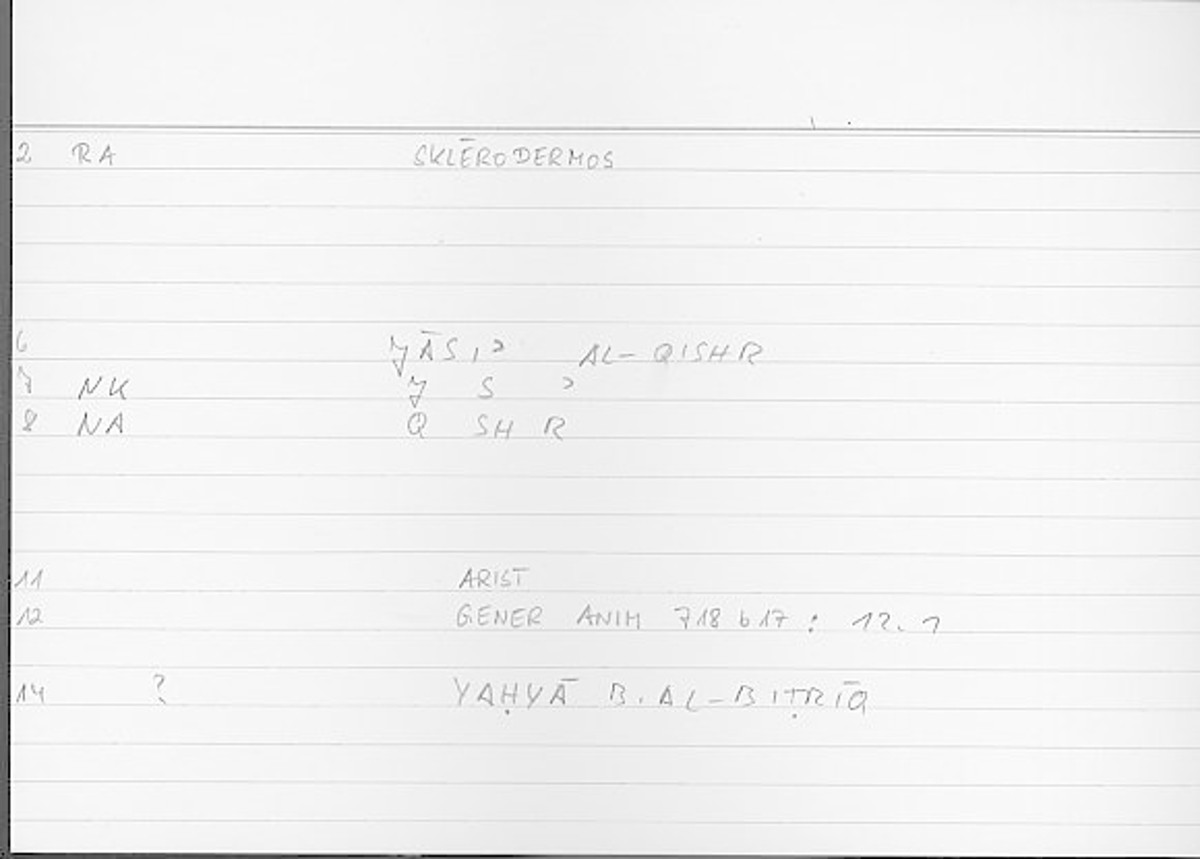 2 RA SKLĒRODERMOS
6 JĀSIʾ AL-QISHR
7 NK J S ʾ
8 NA Q SH R
11 ARIST
12 GENER ANIM 718 b 17 : 12.1
14 ? YAḤYĀ B. AL-BIṬRĪQ